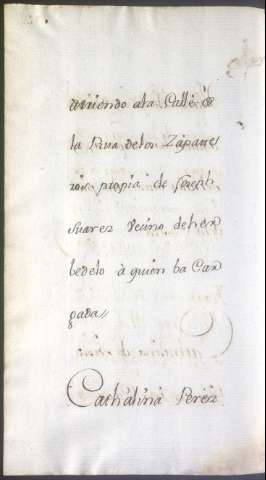 viviendo ala Calle de
la Rua delos Zapate
ros propia de Joseph
suarez vecino deher
bedelo à quien ba Car
gada
Cathalina Perez